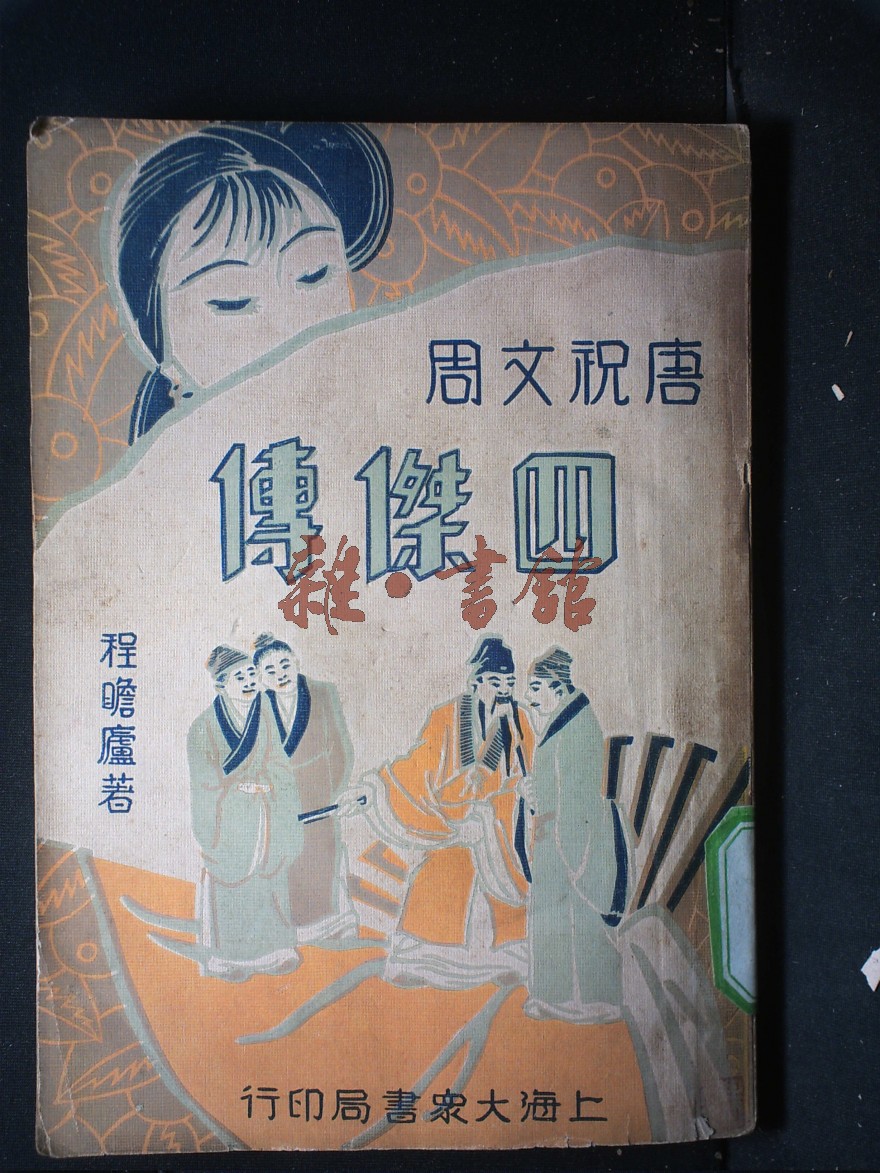 唐祝文周
四傑傳
雜·書館
程瞻廬著
上海大衆書局印行